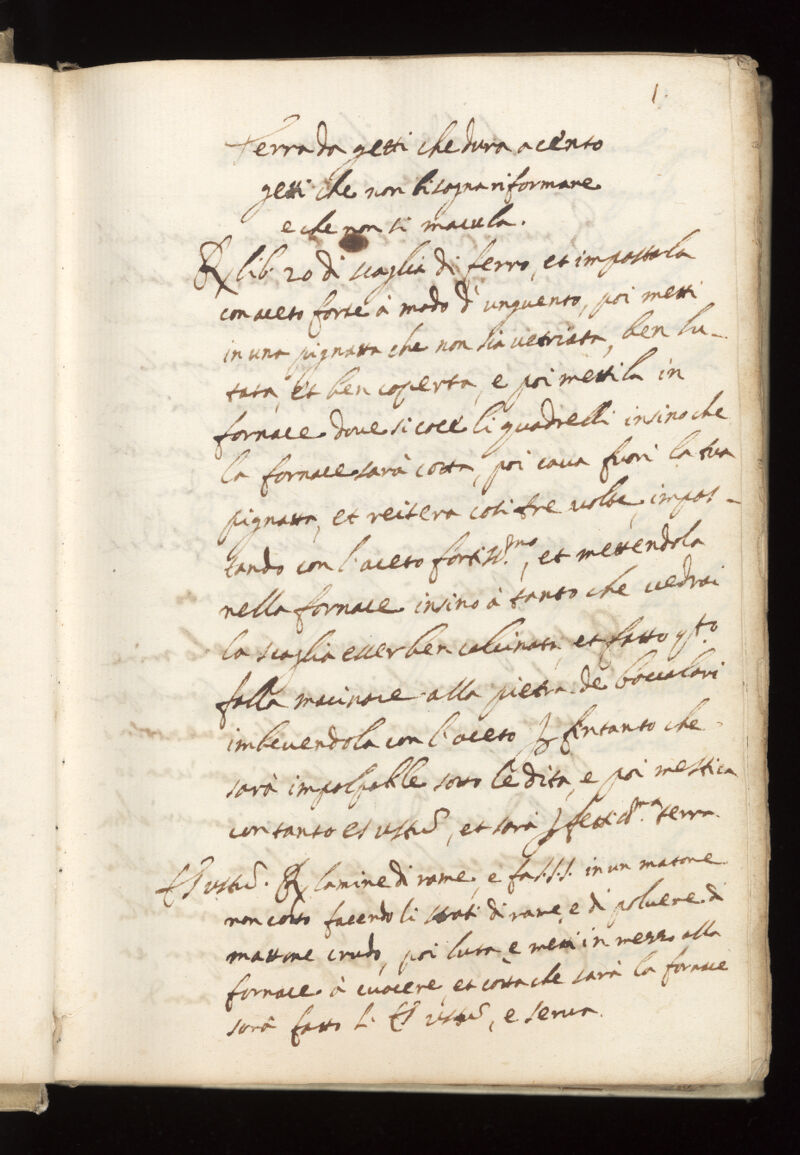 1.
Terra da getti che dura a cento
getti che non bisogna riformare
e che non si macula.
℞ lib. 20 di scaglia di ferro, et impastala
con aceto forte à modo d'unguento, poi metti
in una pignatta che non sia vetriata, ben lu-
tata, et ben coperta, e poi mettila in
fornace dove si coce li quadrelli insino che
la fornace sarà cotta, poi cava fuori la tua
pignatta, et reitera così tre volte, impas-
tando con l'aceto fortiss.mo, et mettendola
nella fornace insino à tanto che vedrai
la scaglia esser ben calcinata, et fatto q.sto
falla macinare alla pietra de boccalari
imbevendola con l'aceto fintanto che
sarà impalpabile sotto le dita, e poi mestica
con tanto es ustũ, et sarà ꝑfettiss.ma terra.
Es ustũ. ℞ lamine di rame, e fa s.s.s. in un matone
non cotto facendo li strati di rame, e di polvere di
mattone crudo, poi luta, e metti in mezzo alla
fornace à cuocere, et cotta che sarà la fornace
sarà fatto l'Es ustũ, e serva.